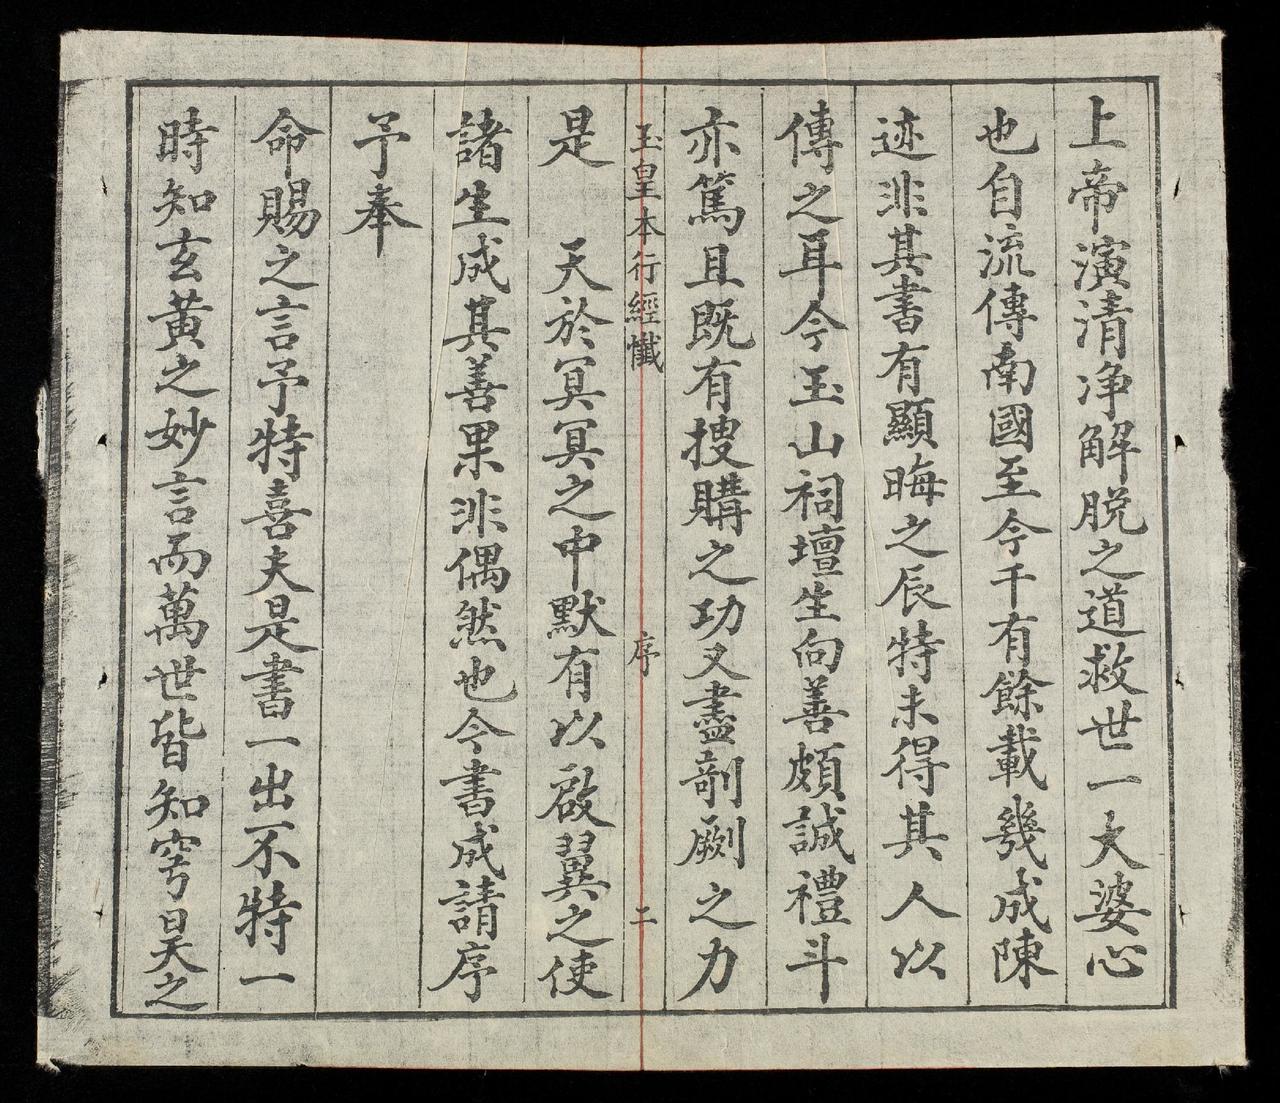 上帝演清净解脱之道救世一大婆心
也自流傳南國至今千有餘載幾成陳
迹非其書有顯晦之辰特未得其人以
傳之耳今玉山祠壇生向善頗誠禮斗
亦篤且既有搜購之功又盡剞劂之力
玉皇本行經懺 序 二
是 天於冥冥之中默有以啟翼之使
諸生成其善果非偶然也今書成請序
予奉
命賜之言予特喜夫是書一出不特一
時知玄黄之妙言而萬世皆知穹昊之